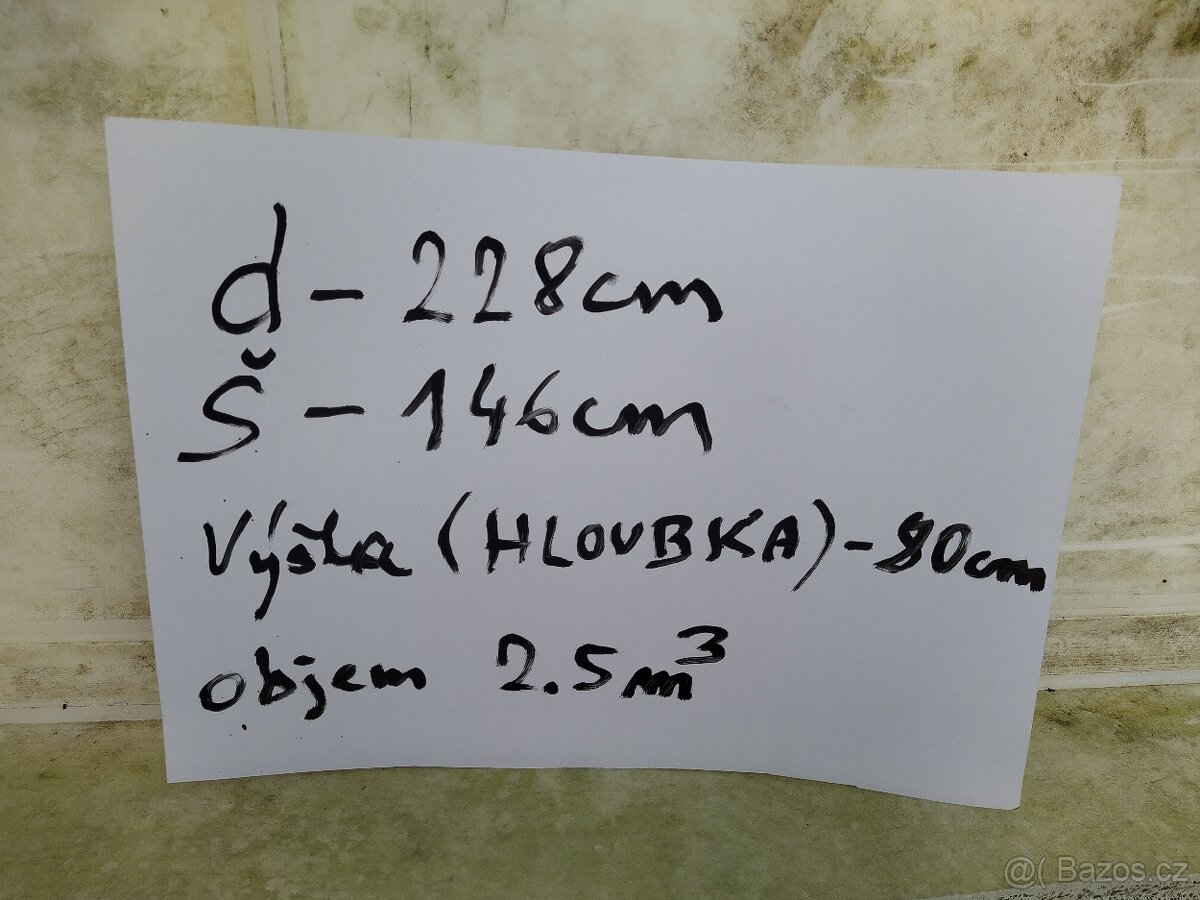 d - 228cm
Š - 146cm
Výška (HLOUBKA) - 80cm
objem 2.5m³
@( Bazos.cz